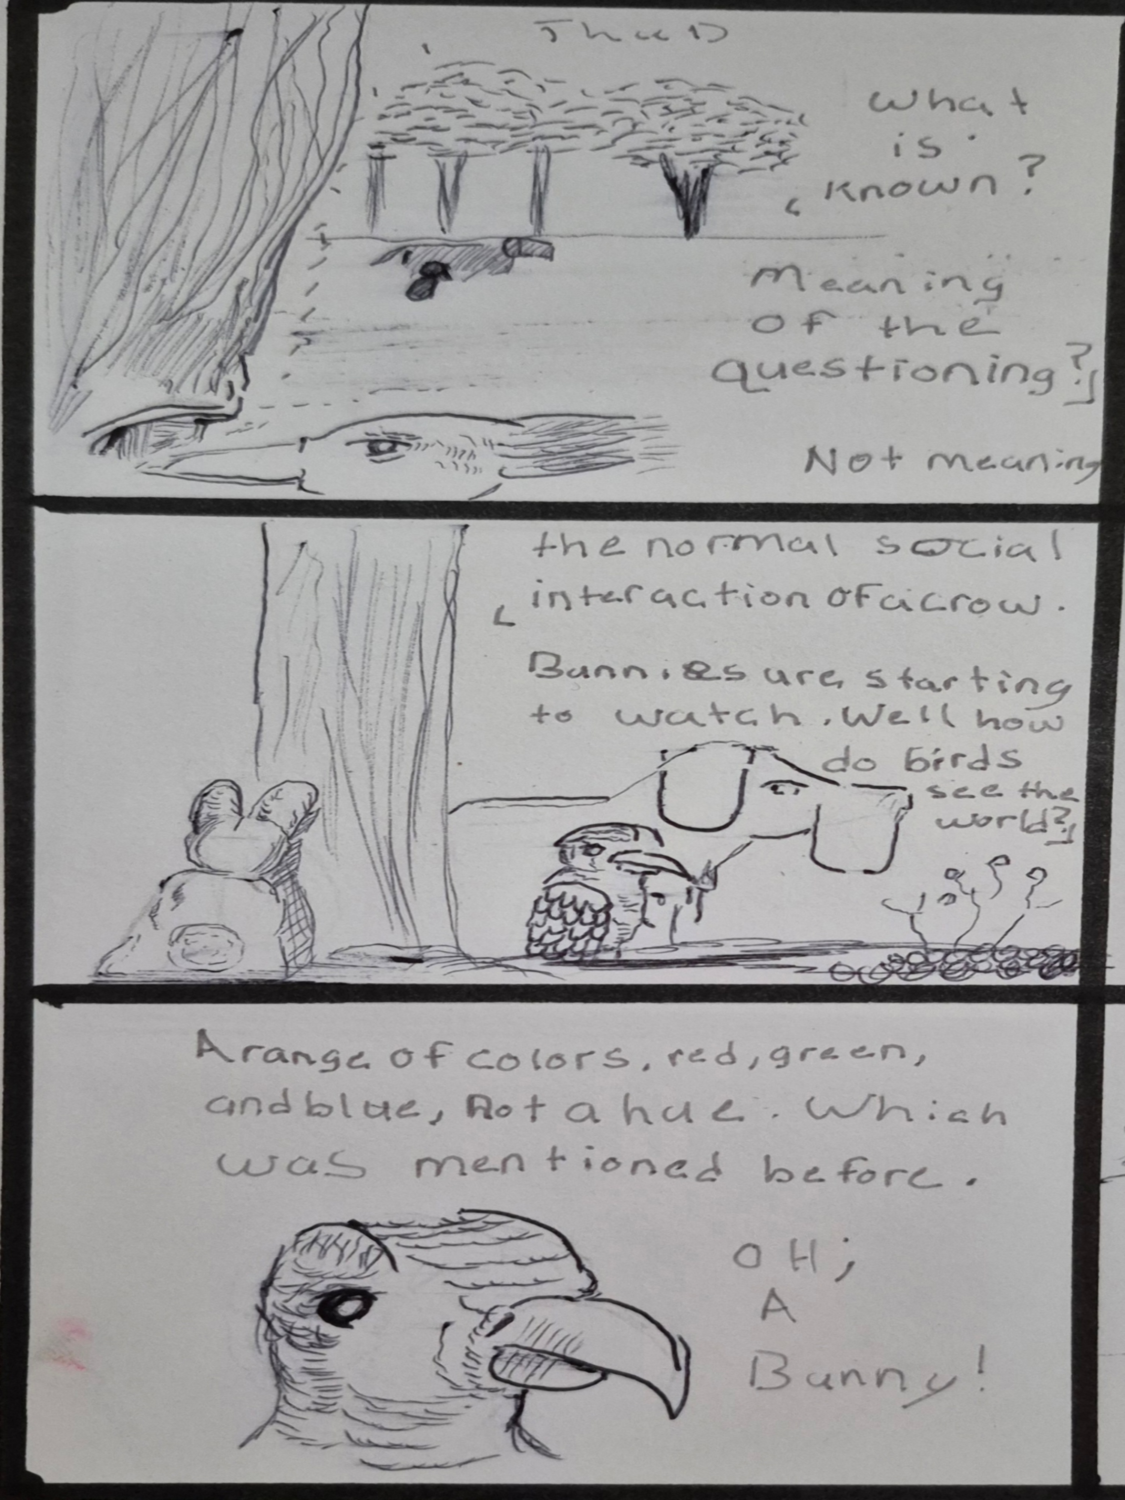 ThuD
What
is
known?
Meaning
of the
questioning?
Not meaning
the normal social
interaction of a crow.
Bunnies are starting
to watch. Well how
do birds
see the
world?
A range of colors, red, green,
and blue, Not a hue. Which
was mentioned before.
OH;
A
Bunny!